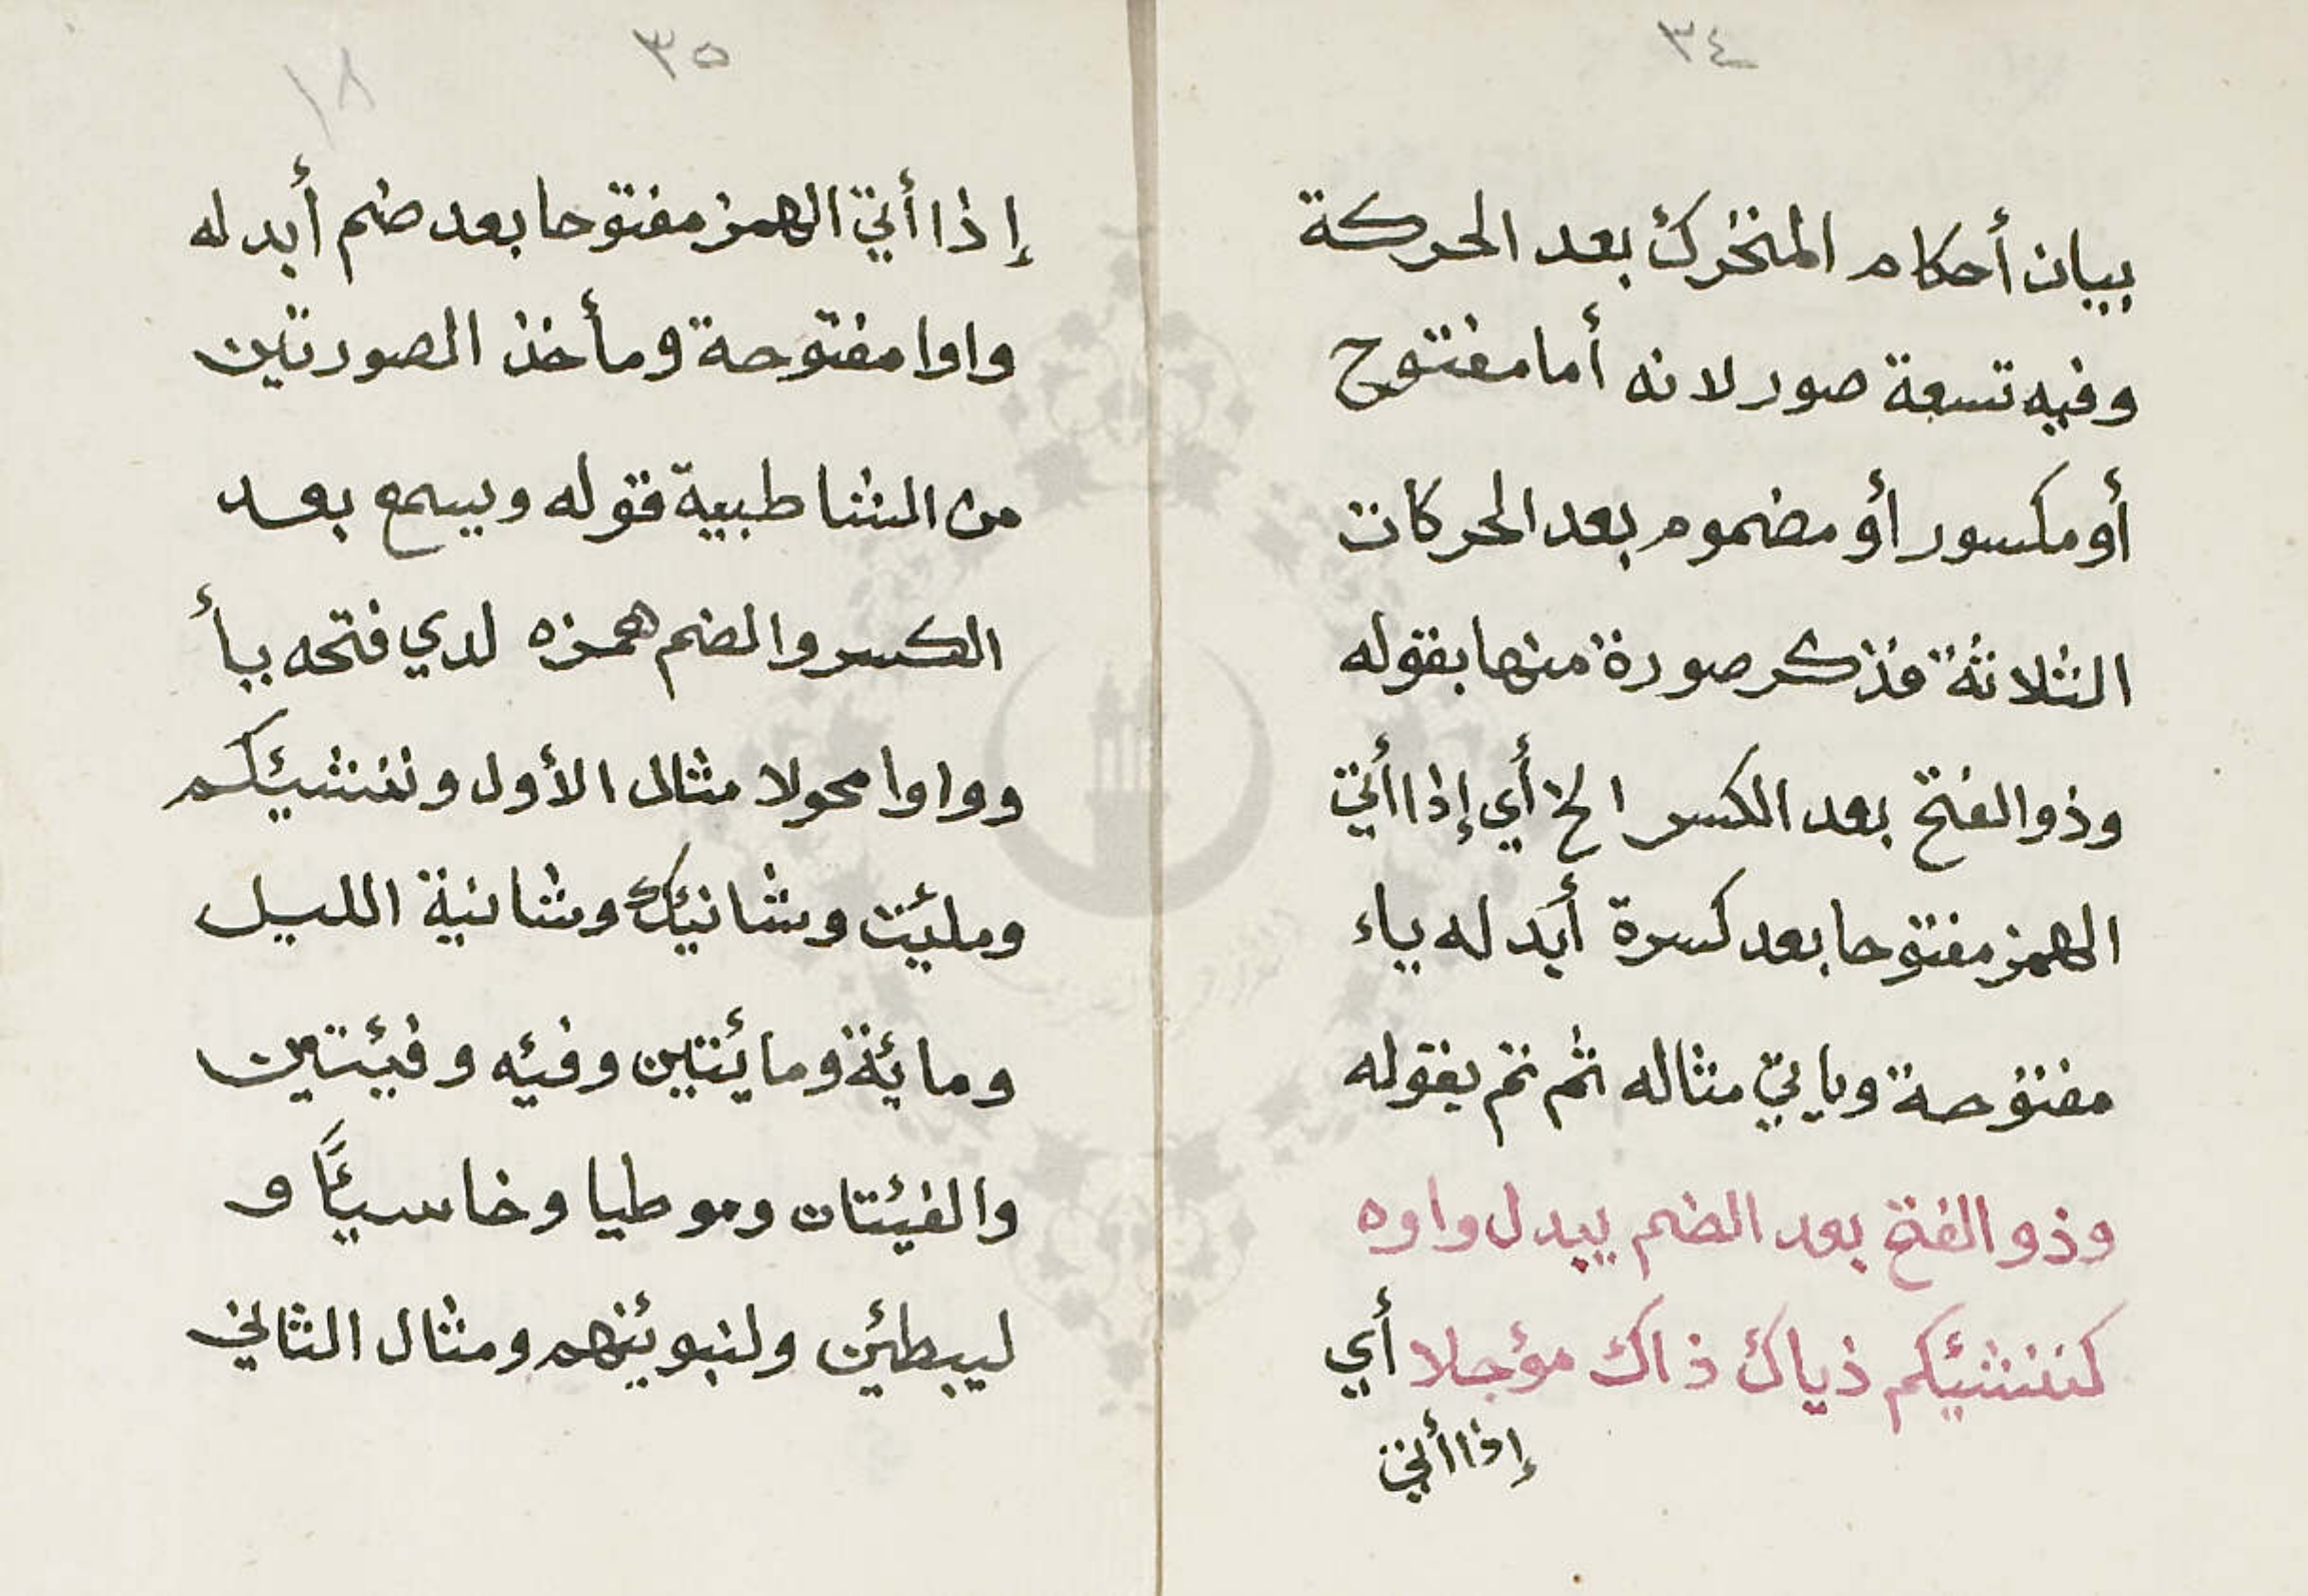 ٣٤
بيان أحكام المتحرك بعد الحركة
وفيه تسعة صور لانه أما مفتوح
أو مكسور أو مضموم بعد الحركات
الثلاثة فذكر صورة منها بقوله
وذو الفتح بعد الكسر الخ أي إذا أتي
الهمز مفتوحا بعد كسرة أبدله ياء
مفتوحة وياتي مثاله ثم تمم بقوله
وذو الفتح بعد الضم يبدل واوه
كننشئكم ذياك ذاك مؤجلا أي
إذا أتي
٣٥
١٨
إذا أتي الهمز مفتوحا بعد ضم أبدله
واوا مفتوحة ومأخذ الصورتين
من الشاطبية قوله ويسمع بعد
الكسر والضم همزه لدي فتحه يأ
وواوا محولا مثال الأول وننشئكم
ومليئت وشانيئك وشانية الليل
ومائة ومائتين وفئه وفيئتين
والفيئتان وموطيا وخاسيئًا و
ليبطئن ولنبوئنهم ومثال الثاني